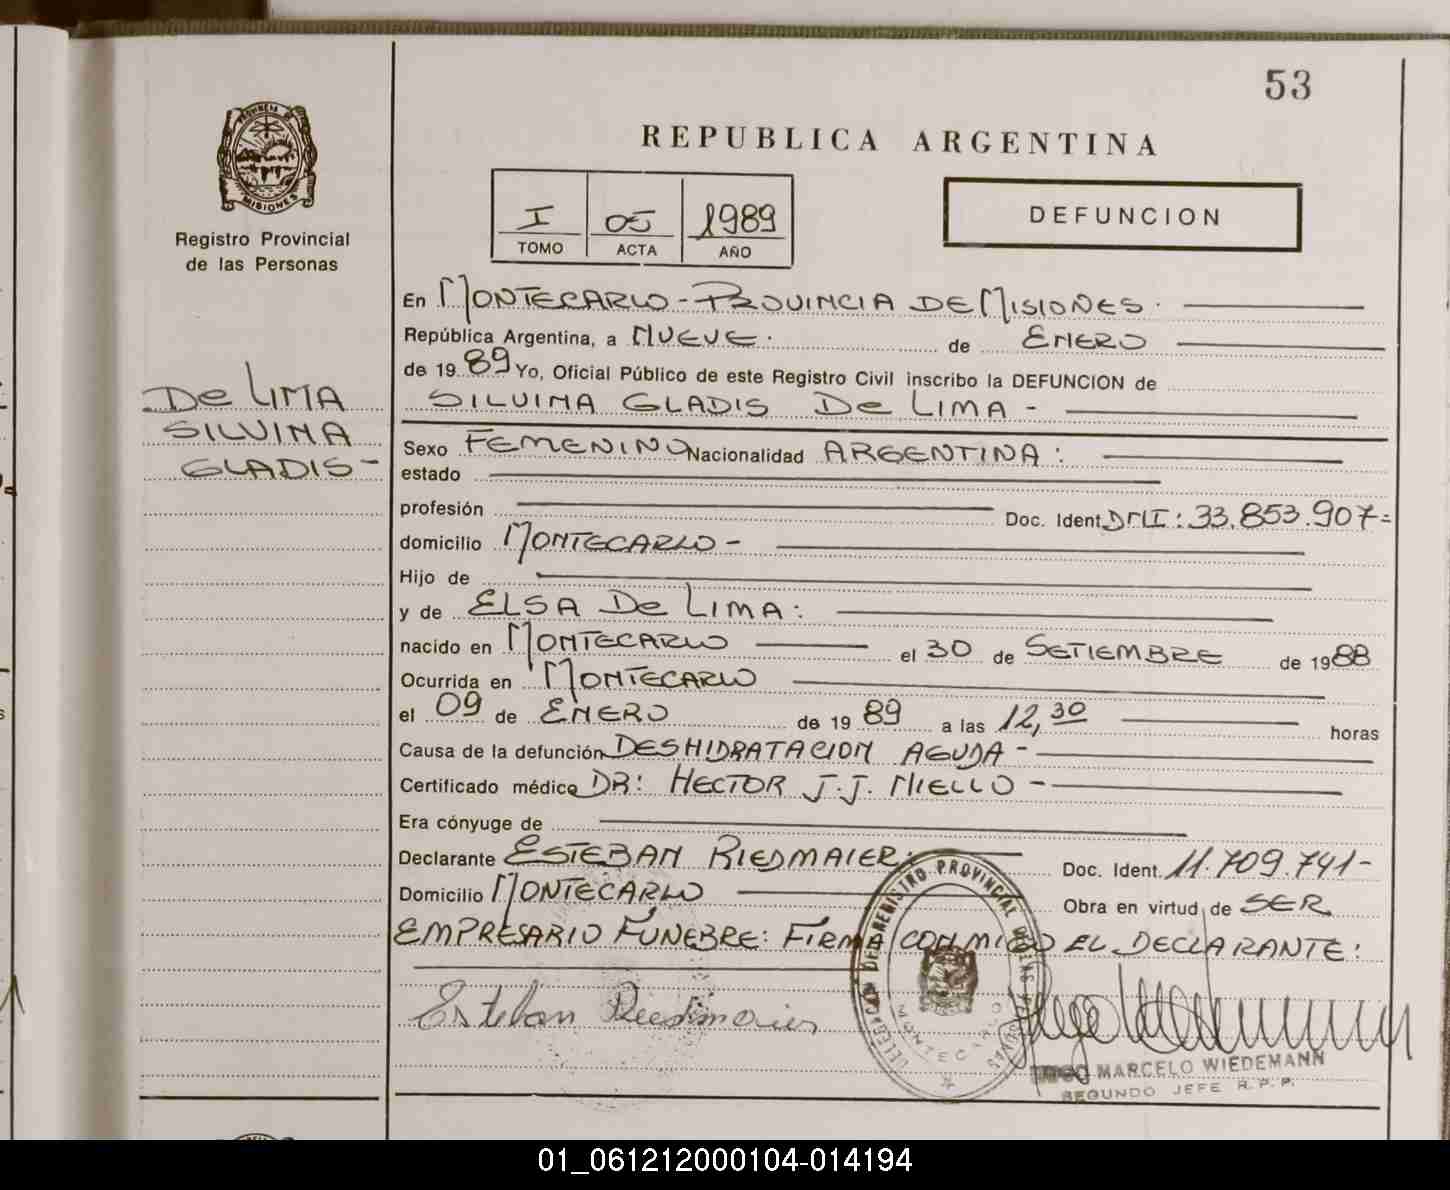 53
PROVINCIA DE
MISIONES
Registro Provincial
de las Personas
REPUBLICA ARGENTINA
I 05 1989
TOMO ACTA AÑO
DEFUNCION
DE LIMA
SILVINA
GLADIS-
En MONTECARLO - PROVINCIA DE MISIONES.
República Argentina, a NUEVE. de ENERO
de 19 89 Yo, Oficial Público de este Registro Civil inscribo la DEFUNCION de
SILVINA GLADIS DE LIMA -
Sexo FEMENINO Nacionalidad ARGENTINA:
estado
profesión Doc. Ident DNI: 33.853.907=
domicilio MONTECARLO -
Hijo de
y de ELSA DE LIMA:
nacido en MONTECARLO el 30 de SETIEMBRE de 1988
Ocurrida en MONTECARLO
el 09 de ENERO de 19 89 a las 12,30 horas
Causa de la defunción DESHIDRATACION AGUDA -
Certificado médico DR: HECTOR J.J. NIELLO -
Era cónyuge de
Declarante ESTEBAN RIEDMAIER: Doc. Ident. 11.709.741-
Domicilio MONTECARLO Obra en virtud de SER
EMPRESARIO FUNEBRE: FIRMA CONMIGO EL DECLARANTE:
Esteban Riedmaier
DELEGACION DEL REGISTRO PROVINCIAL DE LAS PERSONAS
MONTECARLO
HUGO MARCELO WIEDEMANN
SEGUNDO JEFE R.P.P.
01_061212000104-014194